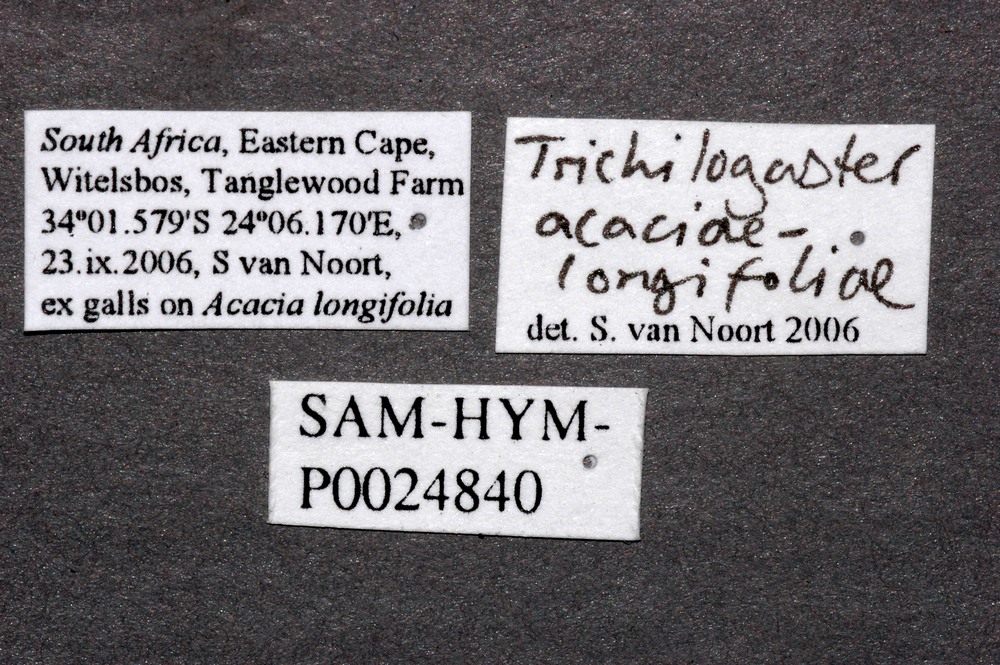 South Africa, Eastern Cape,
Witelsbos, Tanglewood Farm
34º01.579'S 24º06.170'E,
23.ix.2006, S van Noort,
ex galls on Acacia longifolia
Trichilogaster
acaciae-
longifoliae
det. S. van Noort 2006
SAM-HYM-
P0024840